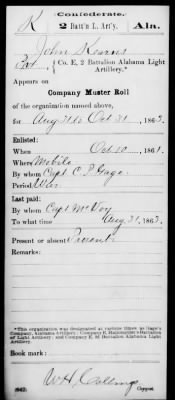 Confederate.
K 2 Batt'n L. Art'y. Ala.
John Kearns
Pvt, Co. E, 2 Battalion Alabama Light
Artillery.*
Appears on
Company Muster Roll
of the organization named above,
for Aug 31 to Oct 31, 1863.
Enlisted:
When Oct 10, 1861.
Where Mobile
By whom Capt C. P. Gage.
Period War
Last paid:
By whom Capt McVoy
To what time Aug 31, 1863.
Present or absent Present
Remarks:
*This organization was designated at various times as Gage's
Company, Alabama Artillery; Company E, Hallonquist's Battalion
of Light Artillery; and Company E, 2d Battalion Alabama Light
Artillery.
Book mark:
W H Collings
(642) Copyist.